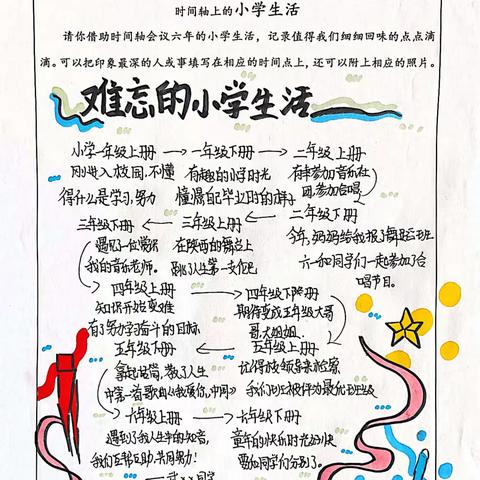 时间轴上的小学生活
请你借助时间轴会议六年的小学生活，记录值得我们细细回味的点点滴
滴。可以把印象最深的人或事填写在相应的时间点上，还可以附上相应的照片。
难忘的小学生活
小学一年级上册 → 一年级下册 → 二年级上册
刚进入校园，不懂
得什么是学习，努力
有趣的小学时光
憧憬自己毕业时的样子
有幸参加音乐社
团，参加合唱
三年级下册 ← 三年级上册 ← 二年级下册
遇见了一位赏识
我的音乐老师。
在陕西的舞台上
跳了人生第一支化吧
今年，妈妈给我报了舞蹈班
六一和同学们一起参加了合
唱节目。
四年级上册 → 四年级下册
知识开始变难
有了努力学习奋斗的目标
期待变成五年级大哥
哥大姐姐.
五年级下册 ← 五年级上册
拿起话筒，
中第一首歌曲《我爱你，中国》
我们班被评为最优班级
六年级上册 → 六年级下册
遇到了我人生中的知音，
我们互帮互助，共同努力！
童年的快乐时光好快
要和同学们分别了。
××同学